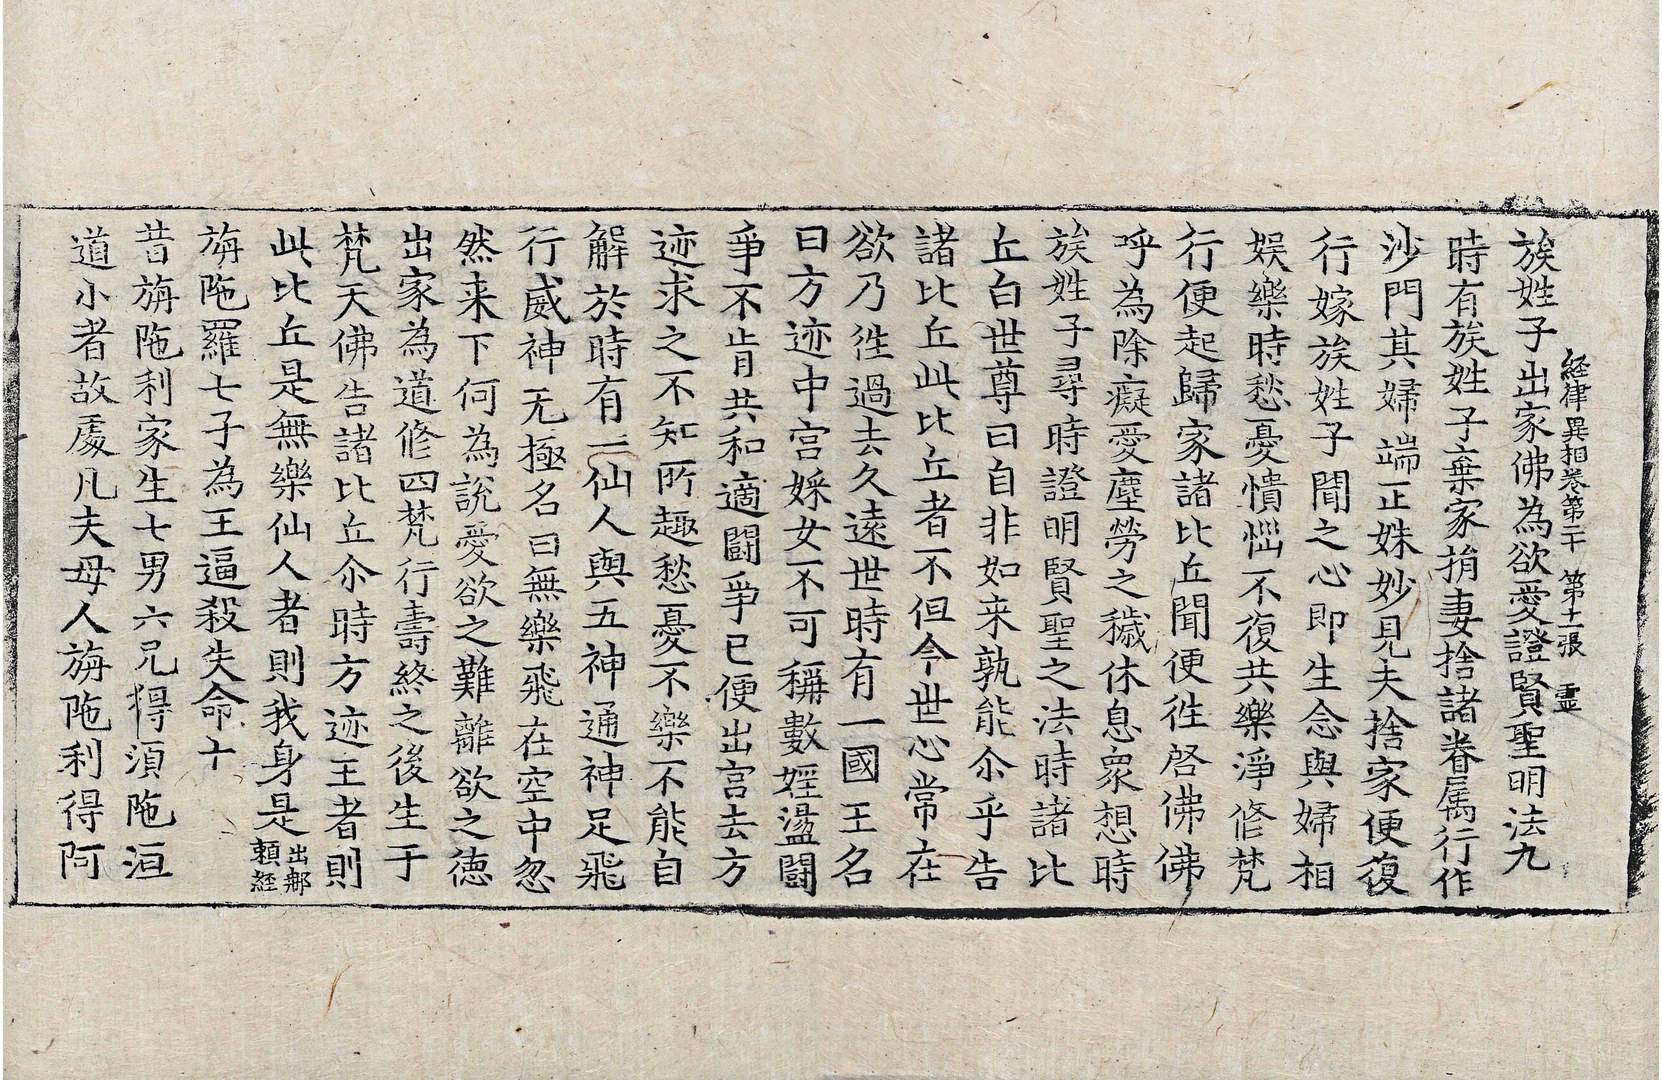 族姓子出家佛為欲愛證賢聖明法九
経律異相卷第二十 第十一張 霊
時有族姓子棄家捐妻捨諸眷属行作
沙門其婦端正姝妙見夫捨家便復
行嫁族姓子聞之心即生念與婦相
娯樂時愁憂憒惱不復共樂淨修梵
行便起歸家諸比丘聞便徃啓佛佛
呼為除癡愛塵勞之穢休息衆想時
族姓子尋時證明賢聖之法時諸比
丘白世尊曰自非如来孰能尒乎告
諸比丘此比丘者不但今世心常在
欲乃徃過去久遠世時有一國王名
曰方迹中宫婇女不可稱數婬盪鬪
爭不肯共和適鬪爭已便出宫去方
迹求之不知所趣愁憂不樂不能自
解於時有二仙人與五神通神足飛
行威神无極名曰無樂飛在空中忽
然来下何為説愛欲之難離欲之徳
出家為道修四梵行壽終之後生于
梵天佛告諸比丘尒時方迹王者則
此比丘是無樂仙人者則我身是出郍頼経
旃陁羅七子為王逼殺失命十
昔旃陁利家生七男六兄得湏陁洹
道小者故處凡夫母人旃陁利得阿